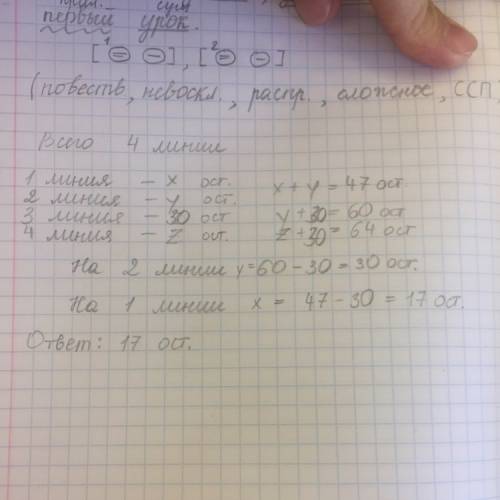 сущ.
первый урок.
[¹⊜ ⊖], [²⊜ ⊖]
(повеств., невоскл., распр., сложное, ССП
Всего 4 линии
1 линия – x ост. x + y = 47 ост.
2 линия – y ост.
3 линия – 30 ост y + 30 = 60 ост
4 линия – z ост. z + 30 = 64 ост
На 2 линии y = 60 – 30 = 30 ост.
На 1 линии x = 47 – 30 = 17 ост.
Ответ: 17 ост.